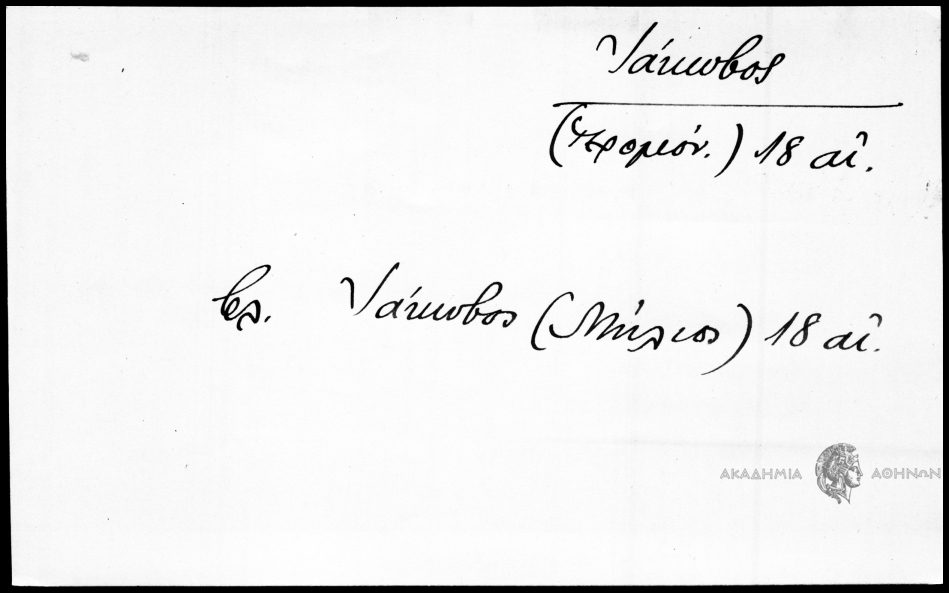 Ἰάκωβος
(ἱερομόν.) 18 αἰ.
βλ. Ἰάκωβος (Μήλιος) 18 αἰ.
ΑΚΑΔΗΜΙΑ ΑΘΗΝΩΝ